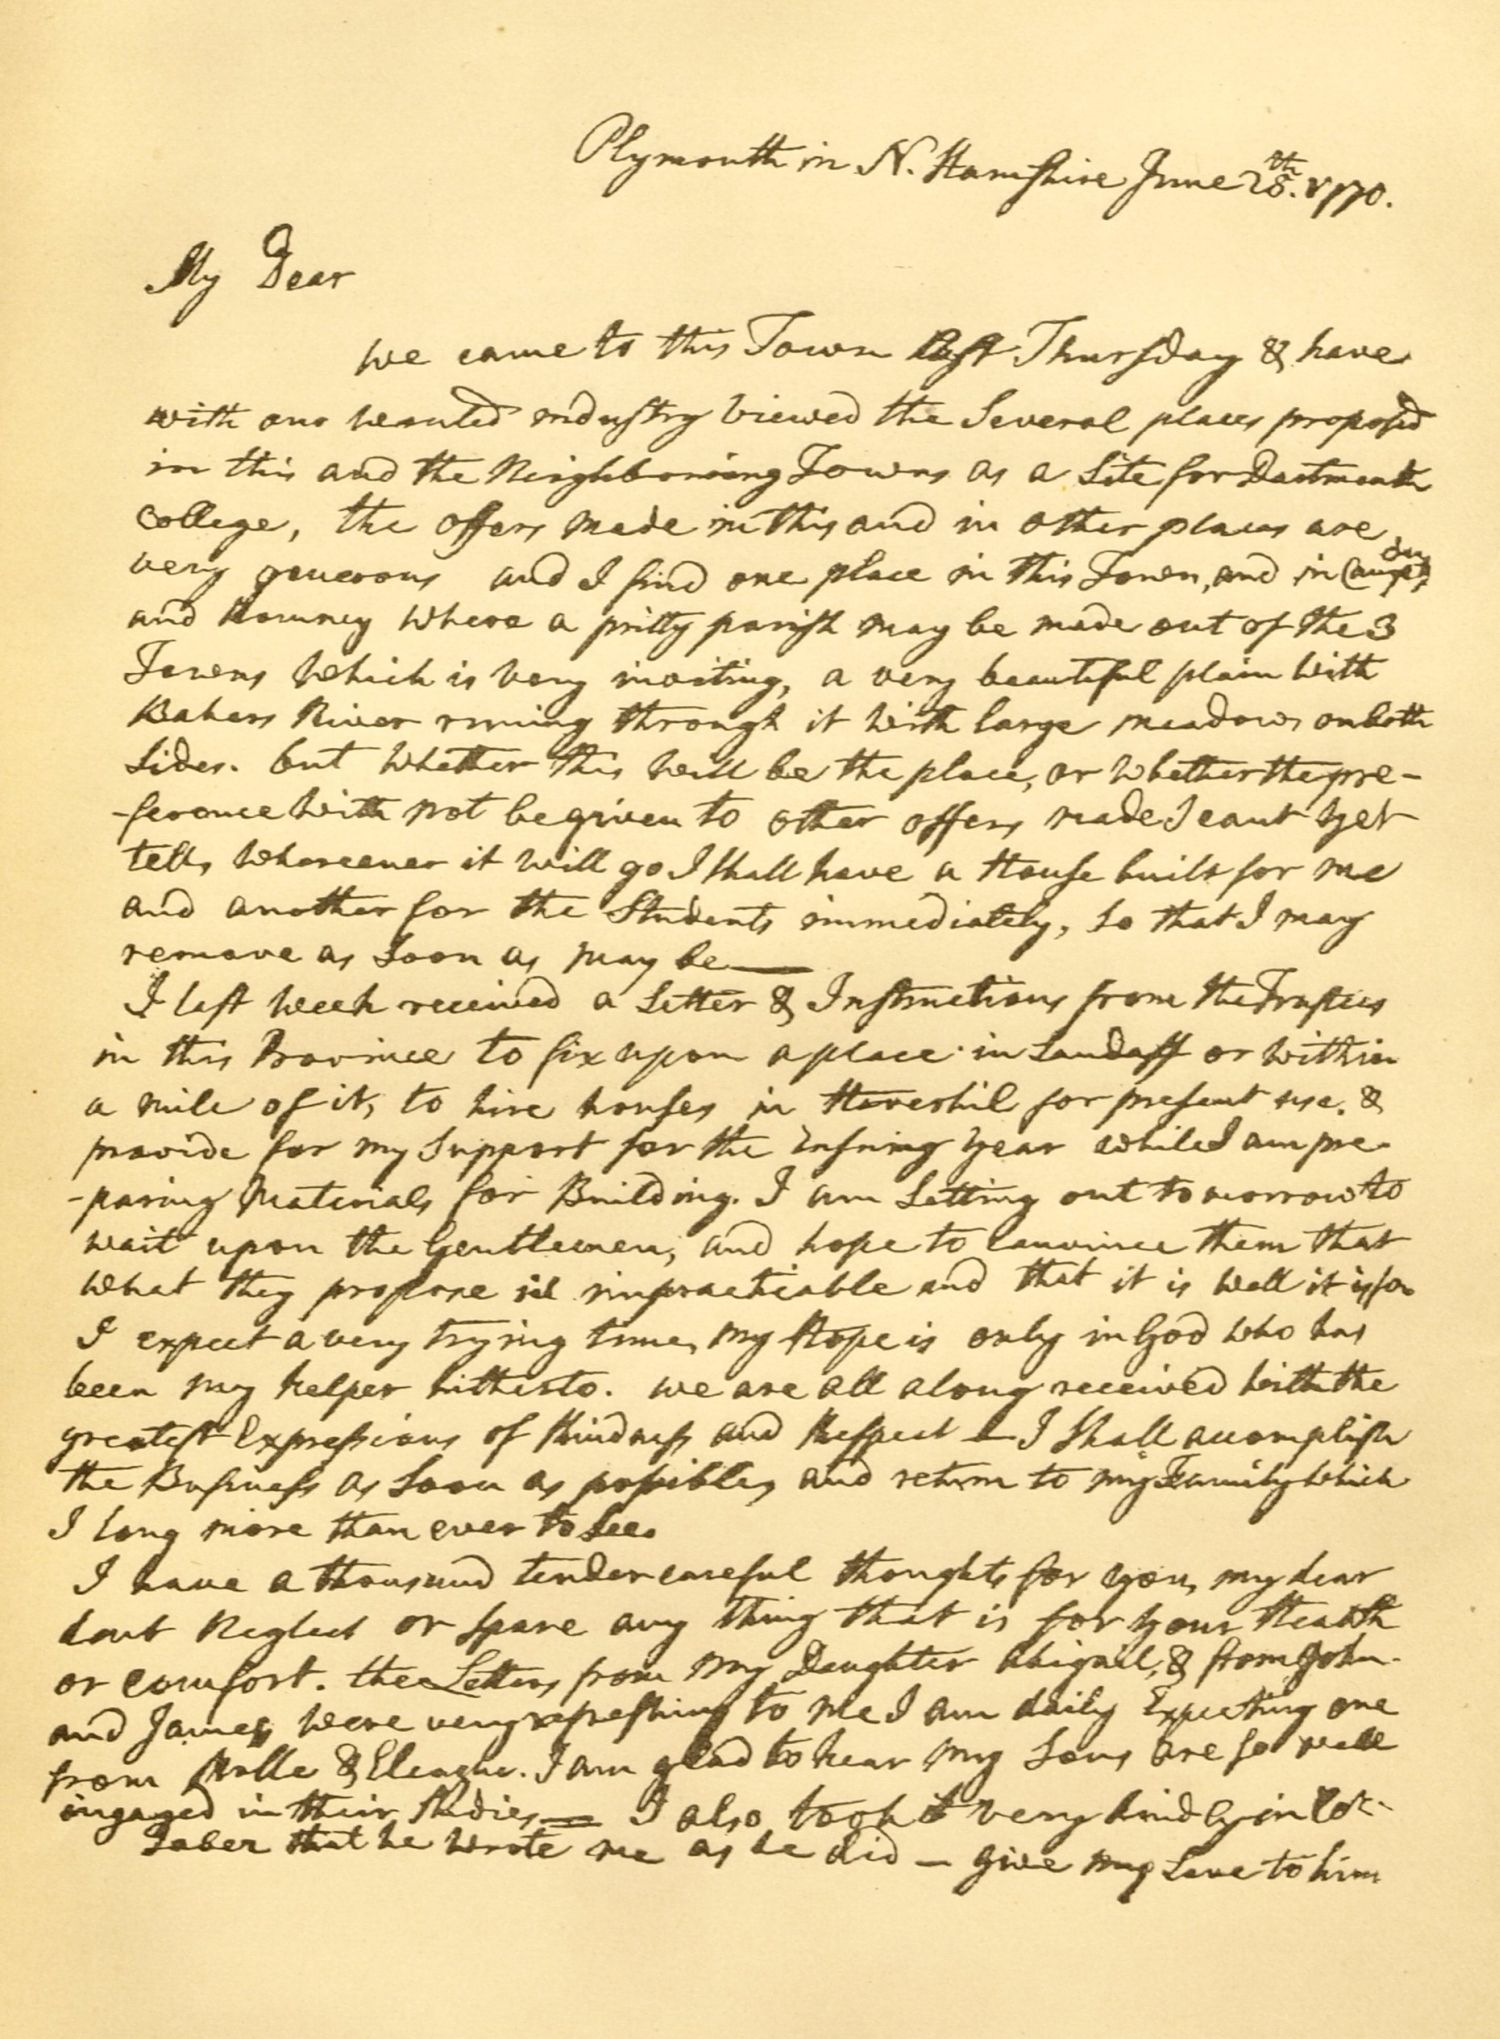 Plymouth in N. Hamshire June 28th. 1770.
My Dear
we came to this Town last Thursday & have
with our wonted industry viewed the Several places proposed
in this and the Neighbouring Towns as a Site for Dartmouth
College, the offers made in this and in other places are
very generous and I find one place in this Town, and in
and Romney where a pritty parish may be made out of the 3
Towns which is very inviting, a very beautiful plain with
Bakers River runing through it with large meadows on both
Sides. but whether this will be the place, or whether the pre-
-ference will not be given to other offers made I cant yet
tell, whereever it will go I shall have a House built for me
and another for the Students immediately, so that I may
remove as soon as may be —
I last week received a Letter & Instructions from the Trustees
in this Province to fix upon a place in Landaff or within
a mile of it, to hire houses in Haverhil for present use. &
provide for my Support for the Ensuing year while I am pre-
-paring Materials for Building. I am Setting out tomorrow to
wait upon the Gentlemen, and hope to convince them that
what they propose is impracticable and that it is well it is so
I expect a very trying time, my Hope is only in God who has
been my helper hitherto. we are all along received with the
greatest Expressions of Kindness and Respect — I shall accomplish
the Business as soon as possible, and return to my Family which
I long more than ever to see.
I have a thousand tender careful thoughts for you, my dear
dont Neglect or spare any thing that is for your Health
or comfort. the Letters from my Daughter Abigail, & from John
and James were very refreshing to me I am daily Expecting one
from & Eleazer. I am glad to hear my Sons are so well
ingaged in their Studies — I also took it very kindly in
that he wrote me as he did — give my Love to him